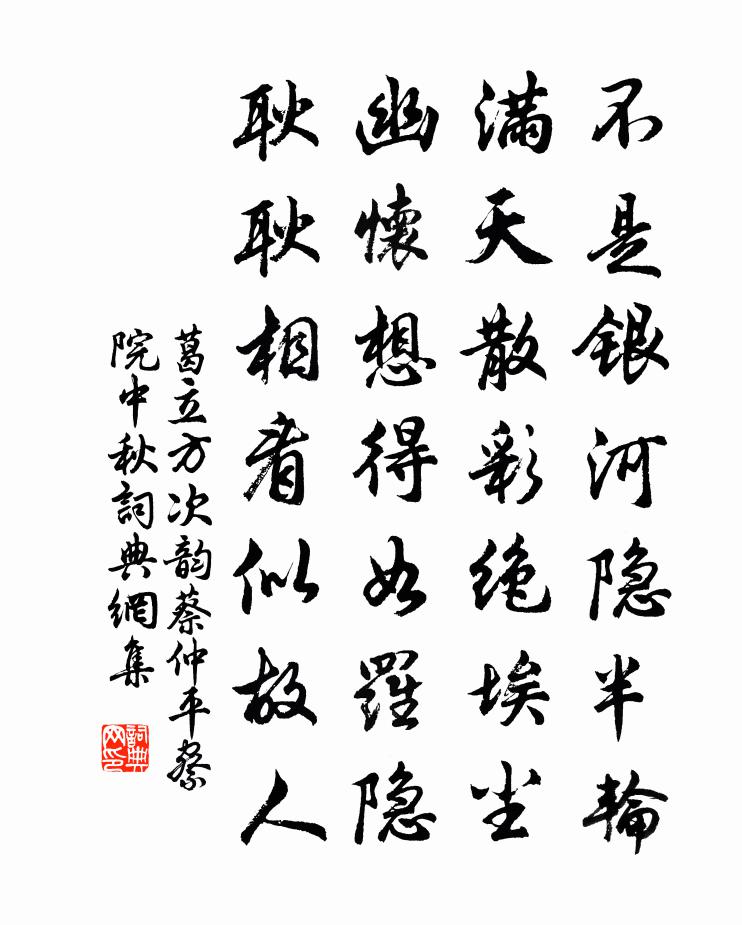 不是银河隐半輪
满天散彩绝埃尘
幽懷想得如羅隐
耿耿相看似故人
葛立方次韵蔡仲平察
院中秋詞典網集
詞典
网印